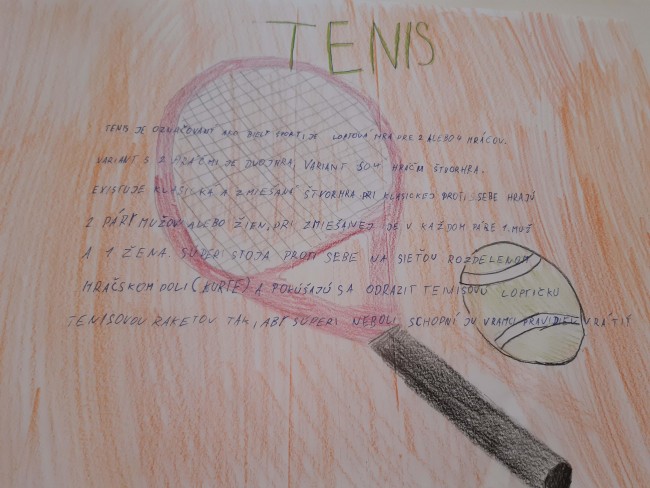 TENIS
TENIS JE OZNAČOVANÝ AKO BIELY ŠPORT. JE LOPTOVÁ HRA PRE 2 ALEBO 4 HRÁČOV.
VARIANT S 2 HRÁČMI JE DVOJHRA, VARIANT SO 4 HRÁČMI ŠTVORHRA.
EXISTUJE KLASICKÁ A ZMIEŠANÁ ŠTVORHRA PRI KLASICKEJ PROTI SEBE HRAJÚ
2 PÁRY MUŽOV ALEBO ŽIEN, PRI ZMIEŠANEJ JE V KAŽDOM PÁRE 1 MUŽ
A 1 ŽENA. SÚPERI STOJA PROTI SEBE NA SIEŤOU ROZDELENOM
HRAČSKOM POLI (KURTE) A POKÚŠAJÚ SA ODRAZIŤ TENISOVÚ LOPTIČKU
TENISOVOU RAKETOU TAK, ABY SÚPERI NEBOLI SCHOPNÍ JU VRÁMCI PRAVIDIEL VRÁTIŤ